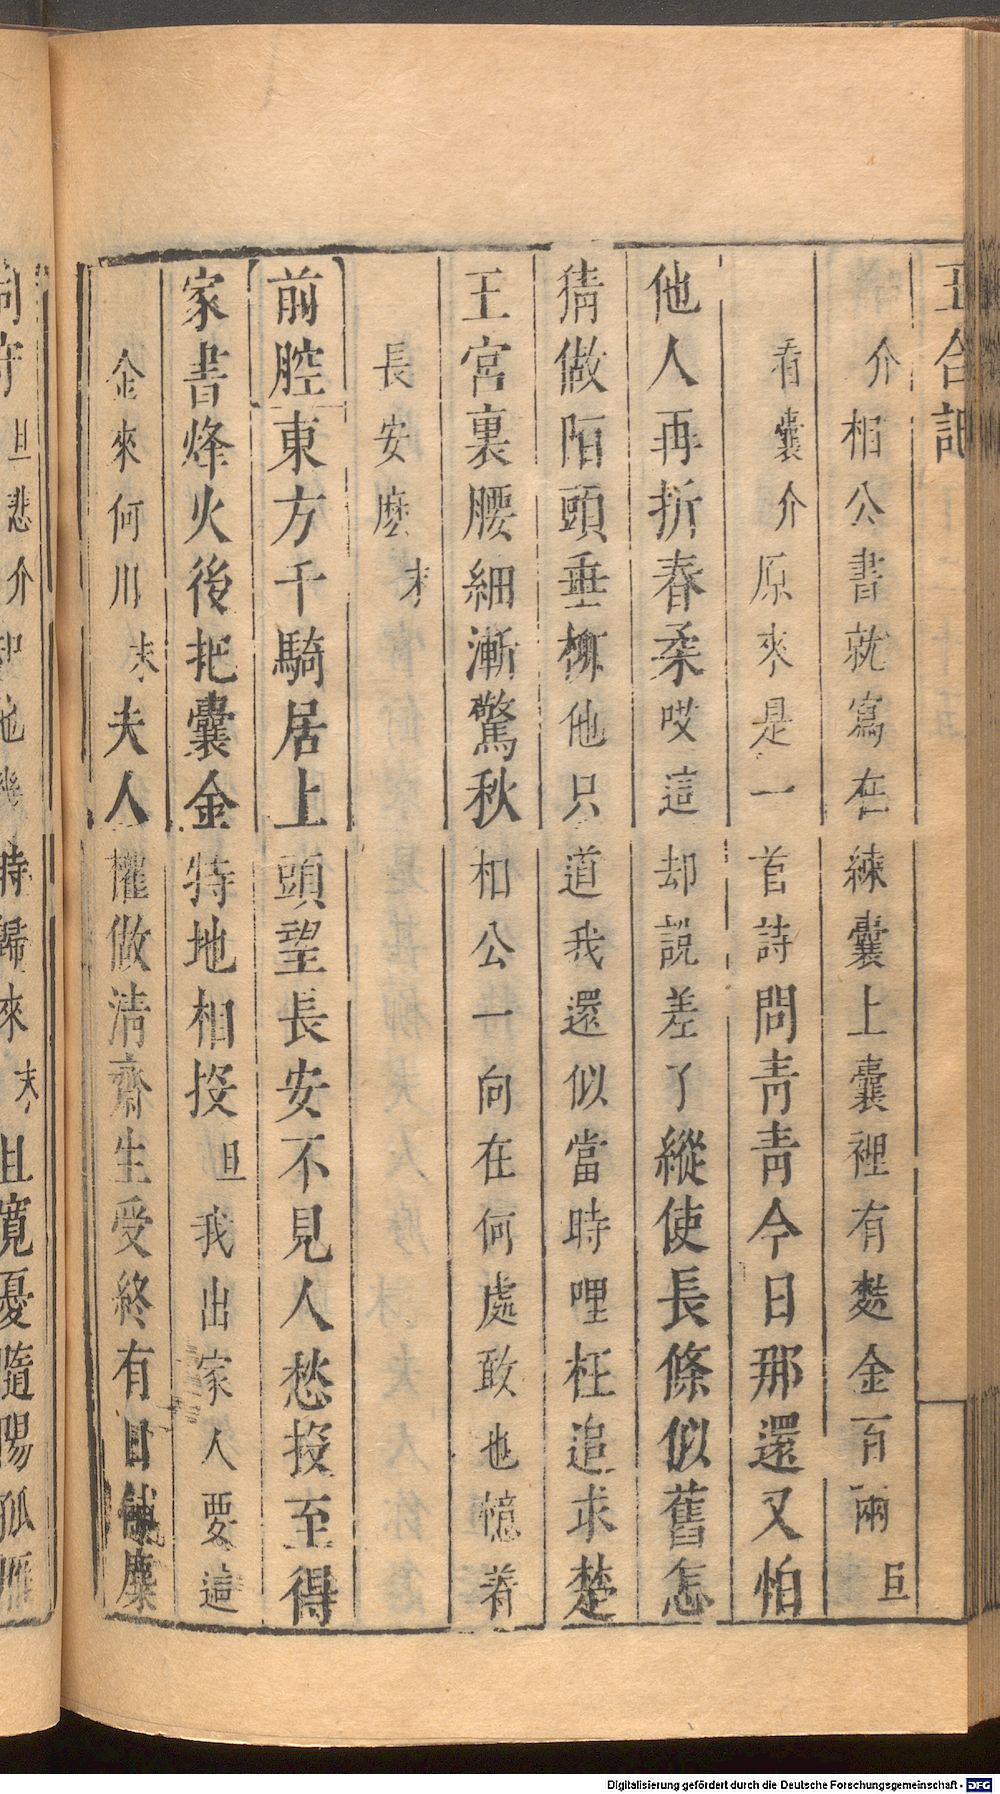 玉合記
介相公書就寫在練囊上囊裡有麩金百兩旦
看囊介原來是一首詩問青青今日那還又怕
他人再折春柔哎這却說差了縱使長條似舊怎
猜做陌頭垂柳他只道我還似當時哩枉追求楚
王宮裏腰細漸驚秋相公一向在何處敢也憶着
長安麽末
前腔東方千騎居上頭望長安不見人愁投至得
家書烽火後把囊金特地相投旦我出家人要這
金來何用末夫人權做清齋生受終有日
旦悲介知他幾時歸來末且寬憂隨陽孤雁
Digitalisierung gefördert durch die Deutsche Forschungsgemeinschaft - DFG